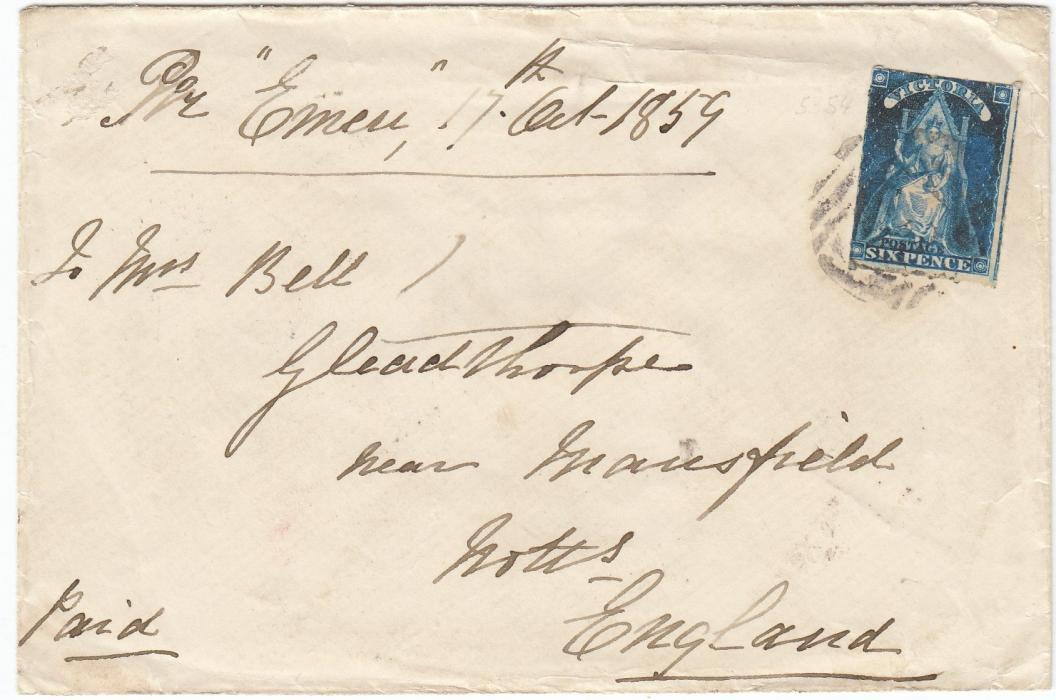 Per "Emeu", 17th Oct- 1859
5-54
VICTORIA
POSTAGE
SIX PENCE
To Mrs Bell
Gleadthorpe
near Mansfield
Notts
England
Paid